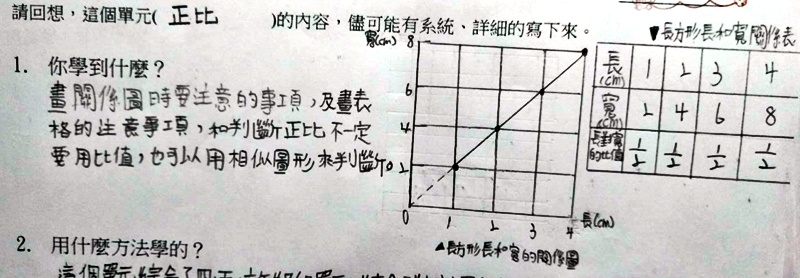 請回想，這個單元( 正比 )的內容，儘可能有系統、詳細的寫下來。
1. 你學到什麼？
畫關係圖時要注意的事項，及畫表
格的注意事項，和判斷正比不一定
要用比值，也可以用相似圖形來判斷。
寬(cm)
8
6
4
2
0 1 2 3 4 長(cm)
▲長方形長和寬的關係圖
▼長方形長和寬關係表
長(cm) 1 2 3 4
寬(cm) 2 4 6 8
長對寬的比值 1/2 1/2 1/2 1/2
2. 用什麼方法學的？
這個單元